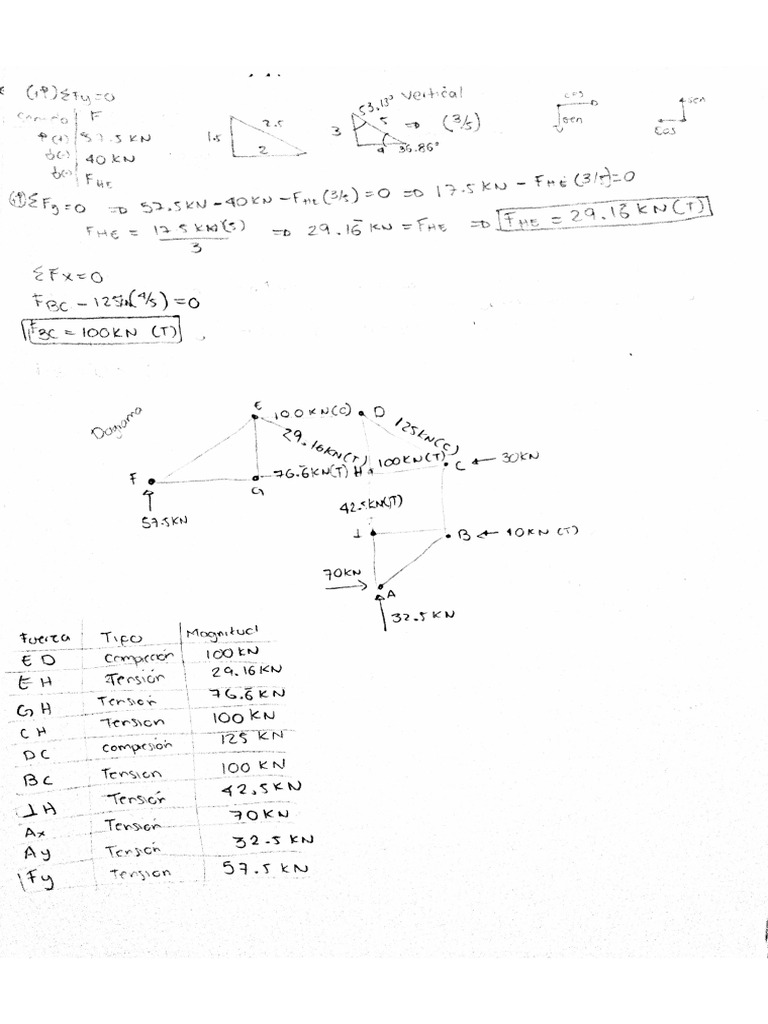 (1º) ΣFy=0
F
57.5 KN
40 KN
F HE
1.5
2.5
2
53.13°
Vertical
3
5
4
⇒ (3/5)
36.86°
cos
sen
sen
cos
ΣFy=0 ⇒ 57.5KN-40KN-F HE (3/5)=0 ⇒ 17.5 KN - F HE (3/5)=0
F HE = 17.5 KN(5)/3 ⇒ 29.16 KN = F HE ⇒ F HE = 29.16 KN (T)
ΣFx=0
F BC - 125KN(4/5)=0
F BC = 100KN (T)
Diagrama
E
100KN(C)
D
29.16KN(T)
125KN(C)
F
G
76.6KN(T)
H
100KN(T)
C
← 30KN
57.5KN
42.5KN(T)
I
B
← 40KN (T)
70KN
A
32.5KN
Fuerza Tipo Magnitud
ED compreción 100KN
EH Tensión 29.16KN
GH Tensión 76.6KN
CH Tension 100 KN
DC compresión 125 KN
BC Tension 100 KN
IH Tensión 42,5KN
Ax Tensión 70KN
Ay Tensión 32.5 KN
Fy Tensión 57.5 KN